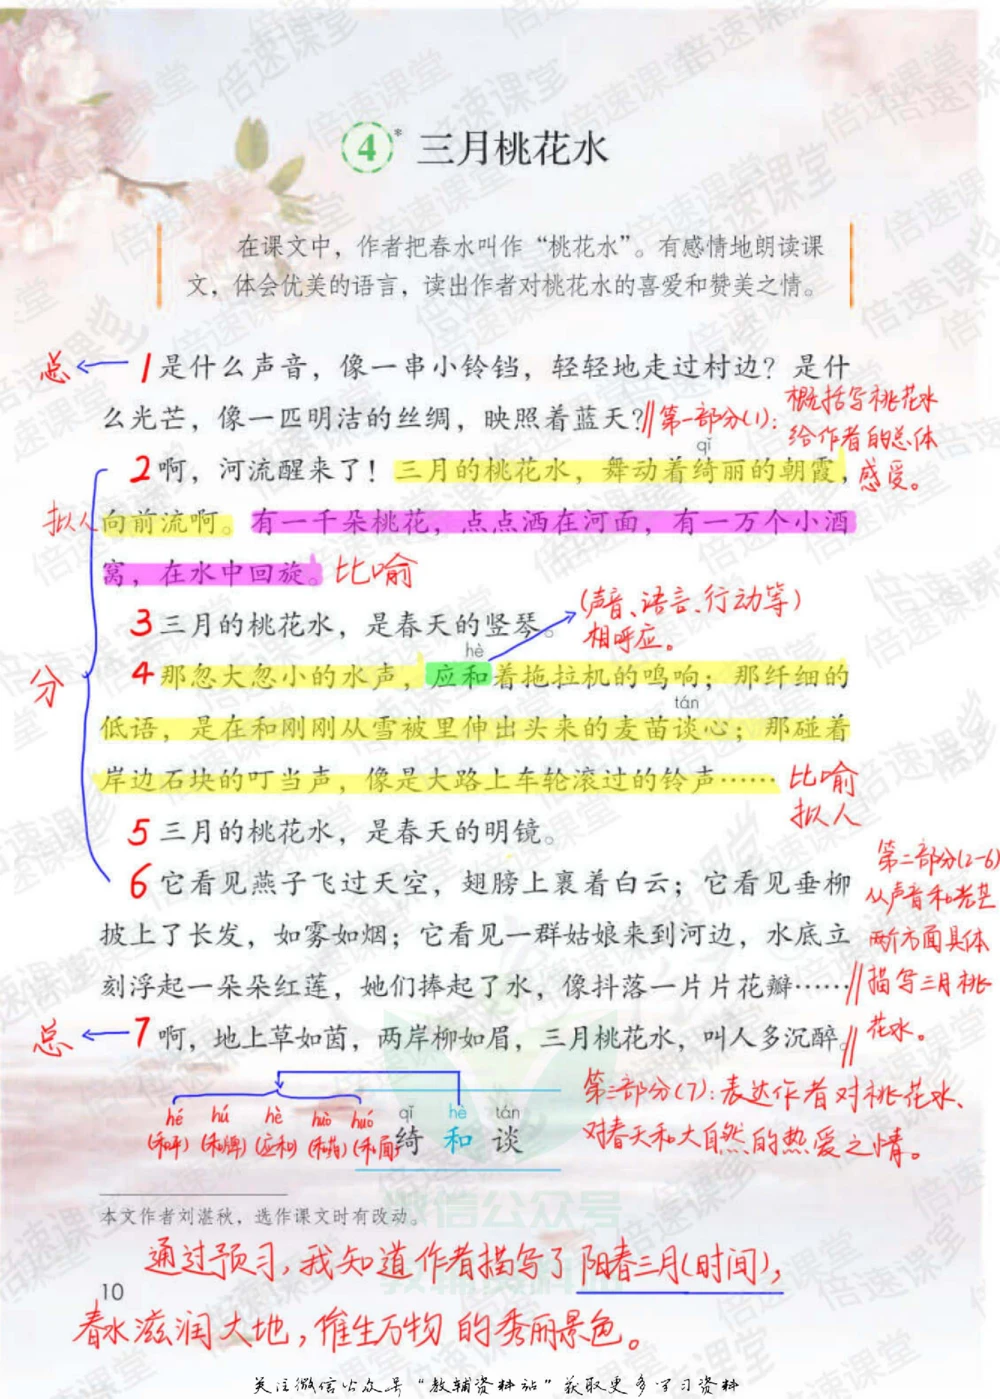 4* 三月桃花水
在课文中，作者把春水叫作“桃花水”。有感情地朗读课
文，体会优美的语言，读出作者对桃花水的喜爱和赞美之情。
总 1 是什么声音，像一串小铃铛，轻轻地走过村边？是什
么光芒，像一匹明洁的丝绸，映照着蓝天？‖第一部分(1)：
概括写桃花水
给作者的总体
感受。
qǐ
2 啊，河流醒来了！三月的桃花水，舞动着绮丽的朝霞，
拟人 向前流啊。有一千朵桃花，点点洒在河面，有一万个小酒
窝，在水中回旋。比喻
3 三月的桃花水，是春天的竖琴。
(声音、语言、行动等)
相呼应。
hè
分 4 那忽大忽小的水声，应和着拖拉机的鸣响；那纤细的
tán
低语，是在和刚刚从雪被里伸出头来的麦苗谈心；那碰着
岸边石块的叮当声，像是大路上车轮滚过的铃声……
比喻
拟人
5 三月的桃花水，是春天的明镜。
6 它看见燕子飞过天空，翅膀上裹着白云；它看见垂柳
披上了长发，如雾如烟；它看见一群姑娘来到河边，水底立
刻浮起一朵朵红莲，她们捧起了水，像抖落一片片花瓣……‖
第二部分(2-6)
从声音和光芒
两个方面具体
描写三月桃
花水。
总 7 啊，地上草如茵，两岸柳如眉，三月桃花水，叫人多沉醉。‖
第三部分(7)：表达作者对桃花水、
对春天和大自然的热爱之情。
hé hú hè huò huó
(和平) (和牌) (应和) (和药) (和面)
qǐ hè tán
绮 和 谈
本文作者刘湛秋，选作课文时有改动。
微信公众号
教辅资料站
通过预习，我知道作者描写了阳春三月(时间)，
10
春水滋润大地，催生万物的秀丽景色。
关注微信公众号“教辅资料站”获取更多学习资料
倍速课堂